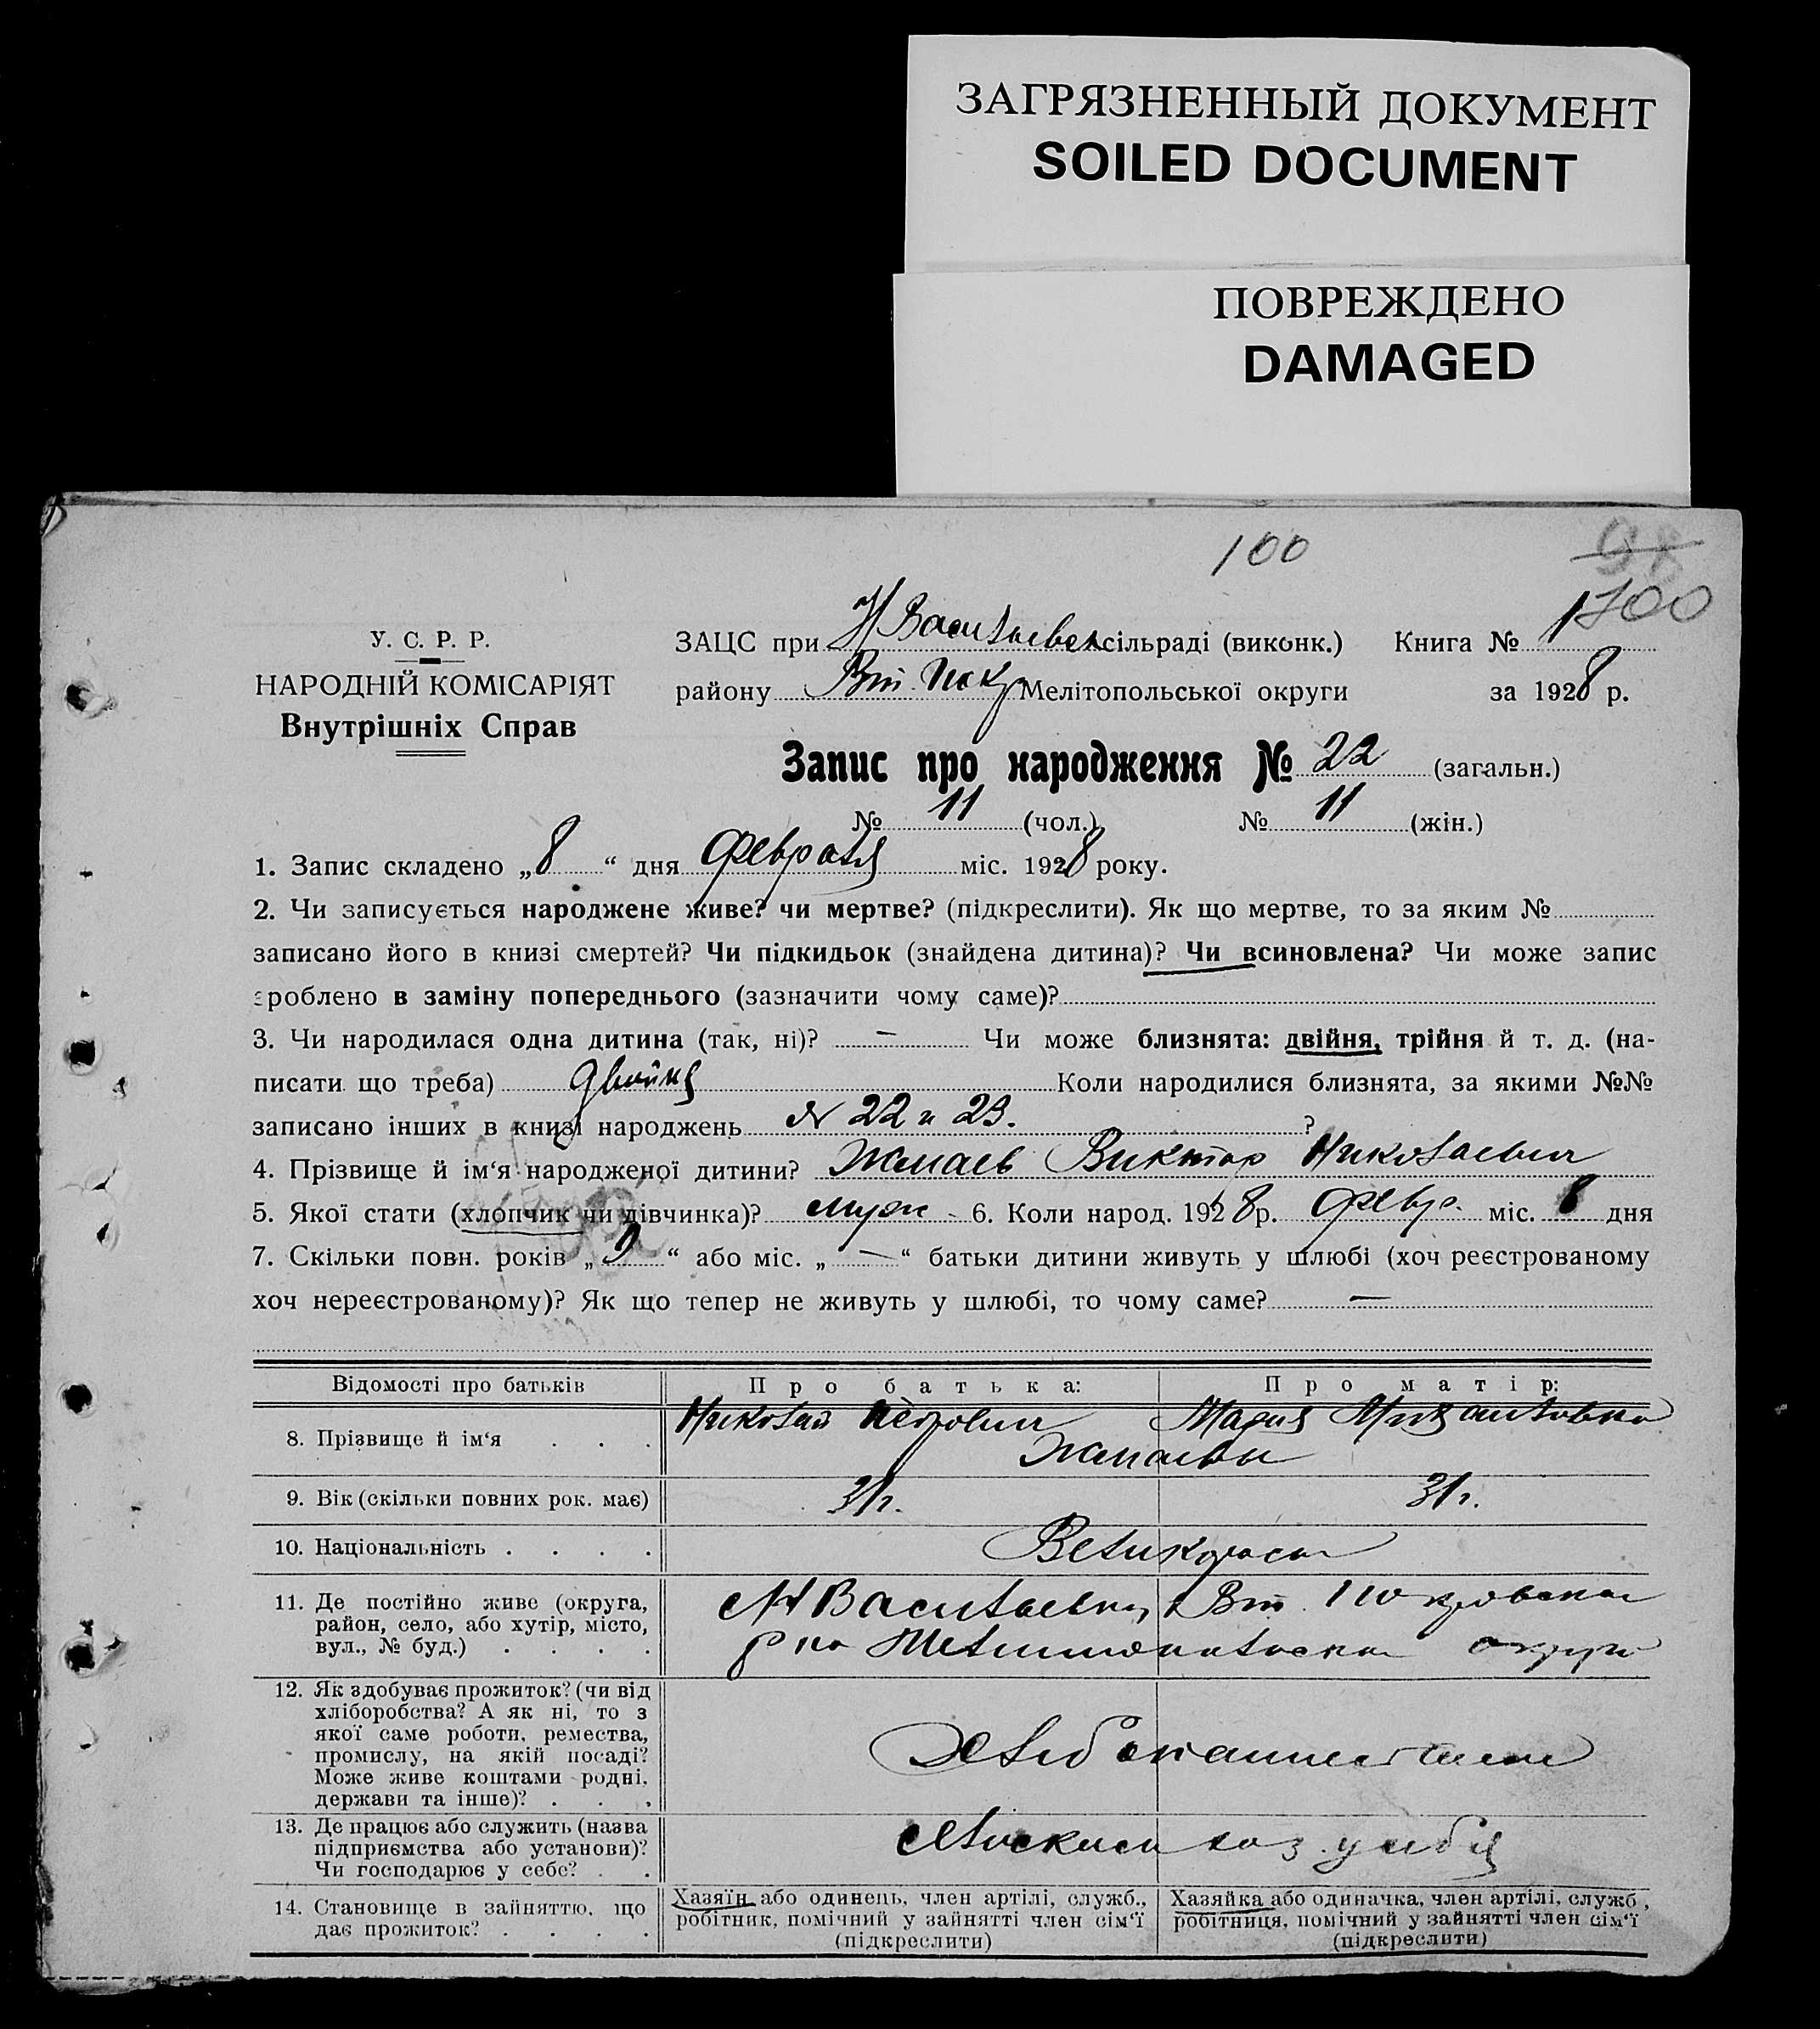 ЗАГРЯЗНЕННЫЙ ДОКУМЕНТ
SOILED DOCUMENT
ПОВРЕЖДЕНО
DAMAGED
100
98
100
У. С. Р. Р.
НАРОДНІЙ КОМІСАРІЯТ
Внутрішніх Справ
ЗАЦС при Н Васильевск сільраді (виконк.) Книга № 1
району Вт. Покр Мелітопольської округи за 1928 р.
Запис про народження № 22 (загальн.)
№ 11 (чол.) № 11 (жін.)
1. Запис складено „8“ дня февраля міс. 1928 року.
2. Чи записується народжене живе? чи мертве? (підкреслити). Як що мертве, то за яким №
записано його в книзі смертей? Чи підкидьок (знайдена дитина)? Чи всиновлена? Чи може запис
зроблено в заміну попереднього (зазначити чому саме)?
3. Чи народилася одна дитина (так, ні)? — Чи може близнята: двійня, трійня й т. д. (на-
писати що треба) двойня Коли народилися близнята, за якими №№
записано інших в книзі народжень № 22 и 23. ?
4. Прізвище й ім‘я народженої дитини? Жмаев Виктор Николаевич
5. Якої стати (хлопчик чи дівчинка)? муж - 6. Коли народ. 1928 р. февр. міс. 8 дня
7. Скільки повн. років „9“ або міс. „—“ батьки дитини живуть у шлюбі (хоч реєстрованому
хоч нереєстрованому)? Як що тепер не живуть у шлюбі, то чому саме? —
Відомості про батьків Про батька: Про матір:
8. Прізвище й ім‘я . . . Николай Петрович Мария
Жмаевы
9. Вік (скільки повних рок. має) 31 г. 31 г.
10. Національність . . . . Великоросы
11. Де постійно живе (округа, район, село, або хутір, місто, вул., № буд.) . . . . Н Васильевка, Вт. Покровского
р на Мелитопольского округа
12. Як здобуває прожиток? (чи від
хліборобства? А як ні, то з
якої саме роботи, ремества,
промислу, на якій посаді?
Може живе коштами родні,
держави та інше)? . . . Хлебопашеством
13. Де працює або служить (назва
підприємства або установи)?
Чи господарює у себе? . . хоз. у себя
14. Становище в зайняттю, що
дає прожиток? . . . .
Хазяїн або одинець, член артілі, служб.,
робітник, помічний у зайнятті член сім‘ї
(підкреслити)
Хазяйка або одиначка, член артілі, служб.,
робітниця, помічний у зайнятті член сім‘ї
(підкреслити)